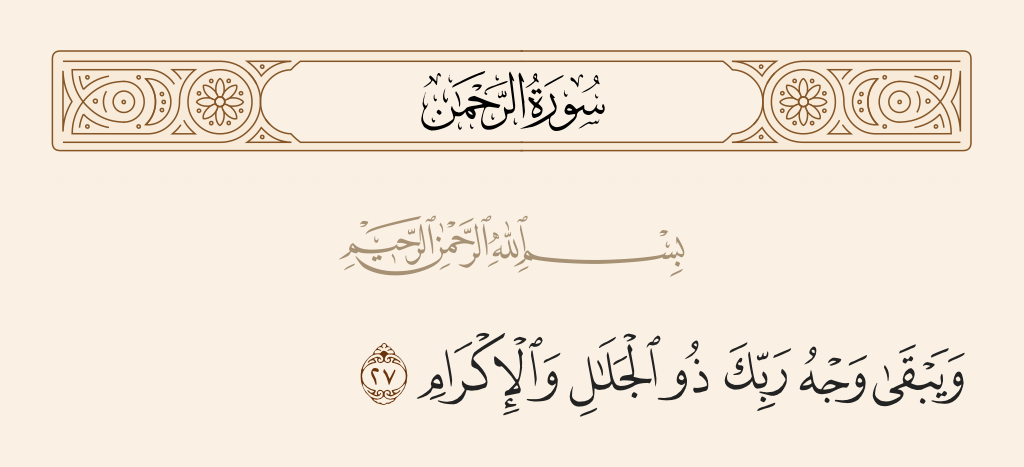 سُورَةُ الرَّحْمَٰن
بِسْمِ ٱللَّهِ ٱلرَّحْمَٰنِ ٱلرَّحِيمِ
وَيَبْقَىٰ وَجْهُ رَبِّكَ ذُو ٱلْجَلَٰلِ وَٱلْإِكْرَامِ ٢٧